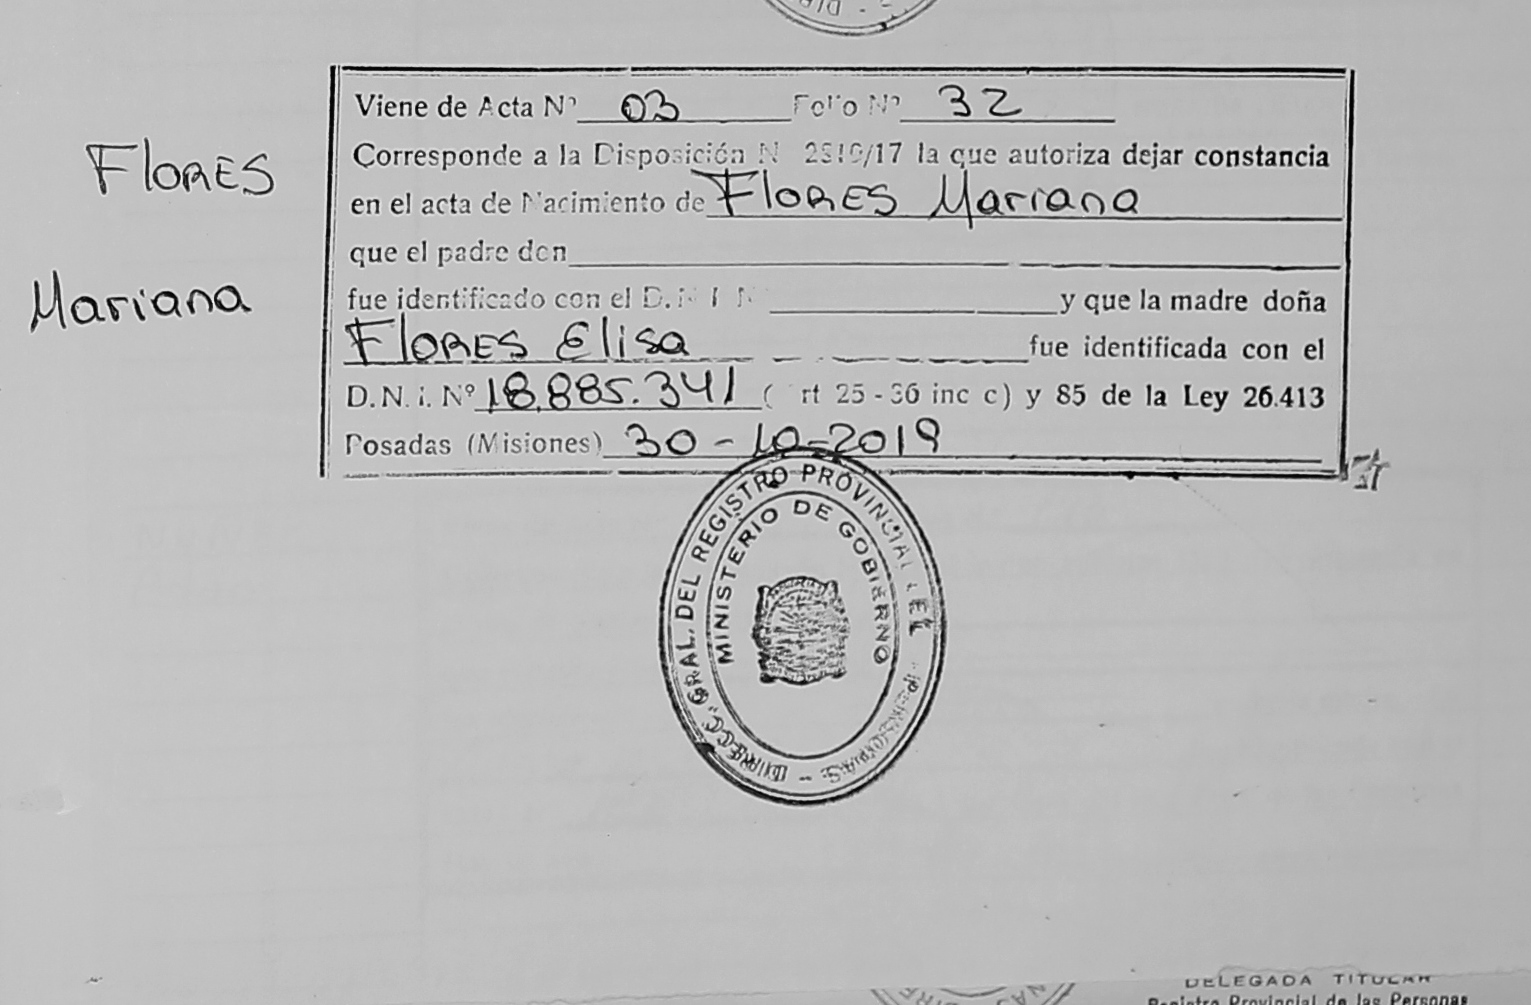 Viene de Acta Nº 03 Folio Nº 32
Corresponde a la Disposición N 2519/17 la que autoriza dejar constancia
en el acta de Nacimiento de Flores Mariana
que el padre don
fue identificado con el D.N I N y que la madre doña
Flores Elisa fue identificada con el
D.N.i. Nº 18.885.341 ( rt 25 - 36 inc c) y 85 de la Ley 26.413
Posadas (Misiones) 30-10-2019
Flores
Mariana
DIRECC. GRAL. DEL REGISTRO PROVINCIAL DE PERSONAS -
MINISTERIO DE GOBIERNO
DELEGADA TITULAR
Registro Provincial de las Personas